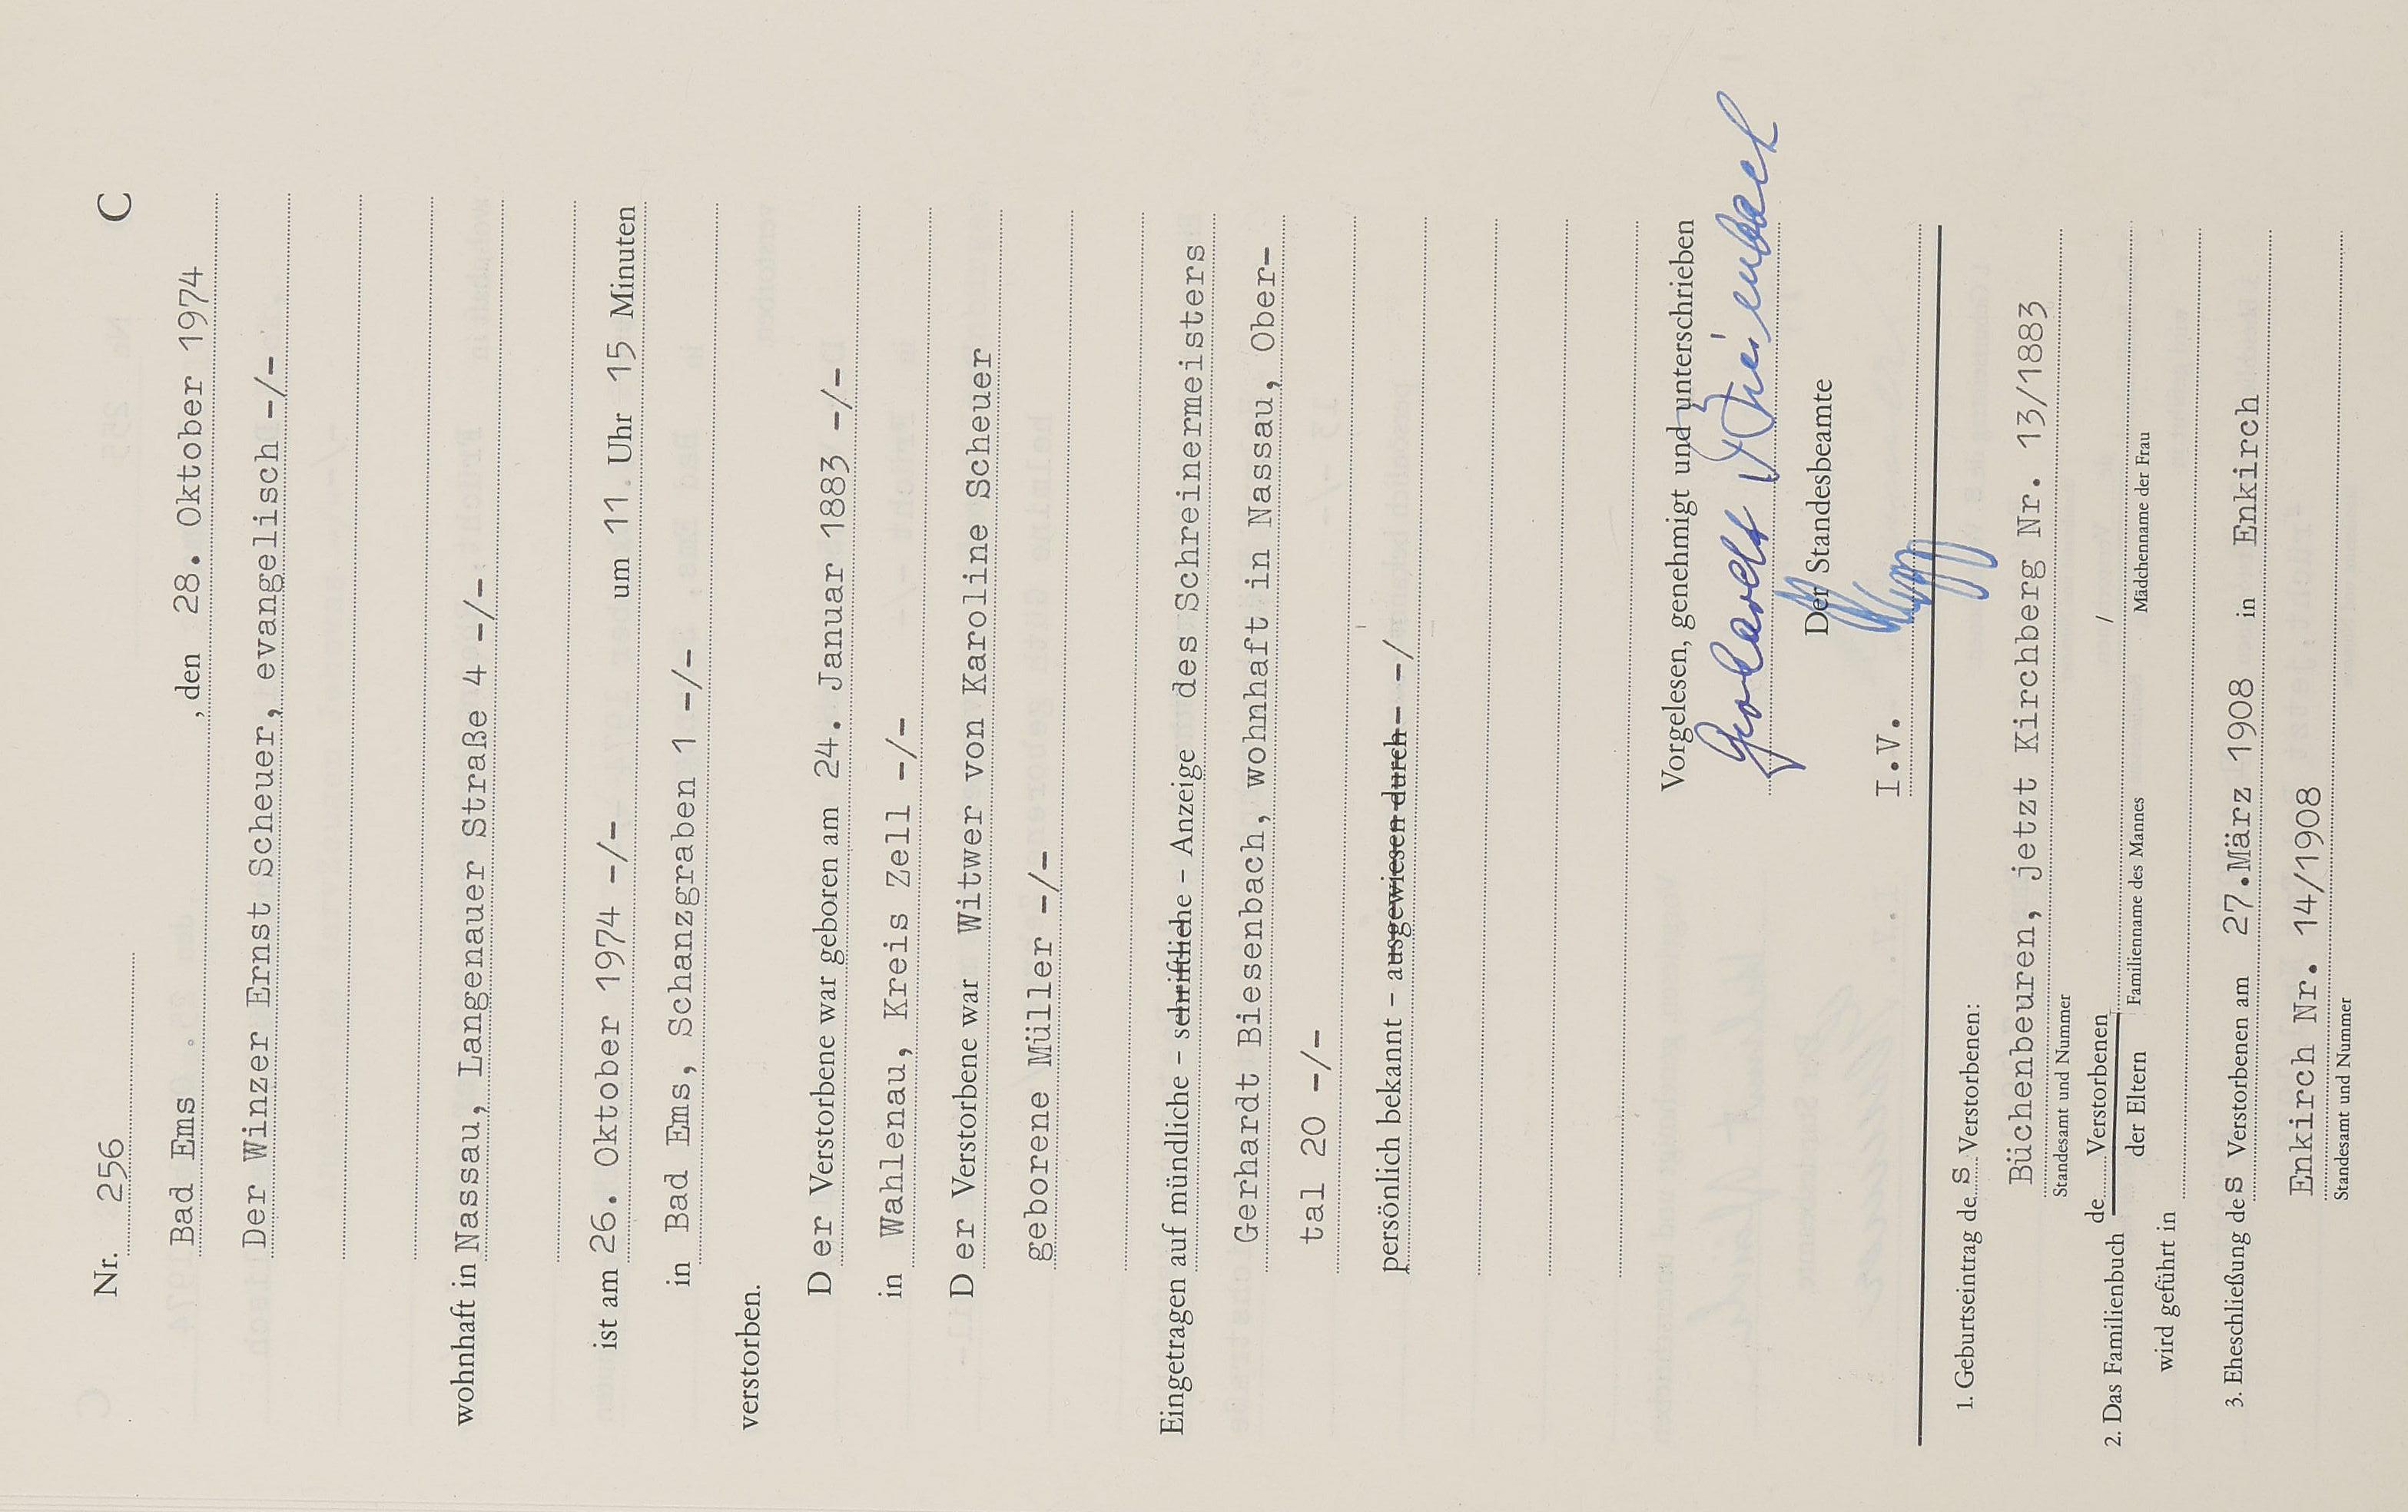 Nr. 256 C
Bad Ems , den 28. Oktober 1974
Der Winzer Ernst Scheuer, evangelisch -/-
wohnhaft in Nassau, Langenauer Straße 4 -/-
ist am 26. Oktober 1974 -/- um 11 Uhr 15 Minuten
in Bad Ems, Schanzgraben 1 -/-
verstorben.
D er Verstorbene war geboren am 24. Januar 1883 -/-
in Wahlenau, Kreis Zell -/-
D er Verstorbene war Witwer von Karoline Scheuer
geborene Müller -/-
Eingetragen auf mündliche - schriftliche - Anzeige des Schreinermeisters
Gerhardt Biesenbach, wohnhaft in Nassau, Ober-
tal 20 -/-
persönlich bekannt - ausgewiesen durch - -/
Vorgelesen, genehmigt und unterschrieben
Gerhardt Biesenbach
Der Standesbeamte
I.V.
1. Geburtseintrag de s Verstorbenen:
Büchenbeuren, jetzt Kirchberg Nr. 13/1883
Standesamt und Nummer
2. Das Familienbuch de Verstorbenen /
der Eltern Familienname des Mannes Mädchenname der Frau
wird geführt in
3. Eheschließung des Verstorbenen am 27.März 1908 in Enkirch
Enkirch Nr. 14/1908
Standesamt und Nummer